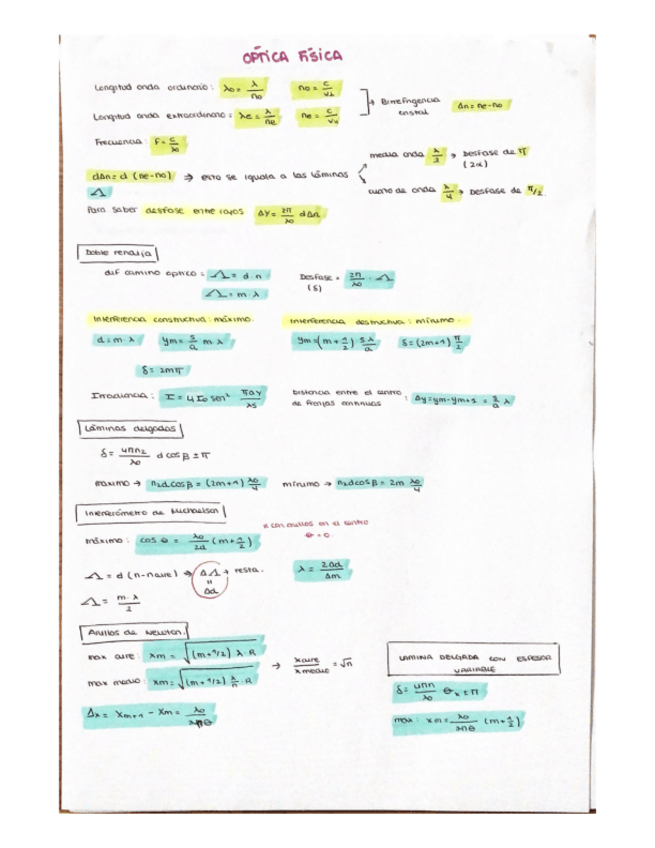 OPTICA FÍSICA
Longitud onda ordinario: λo = λ/no   no = c/v⊥
Longitud onda extraordinario = λe = λ/ne   ne = c/v∥   → Birrefringencia cristal   Δn = ne-no
Frecuencia: f = c/λo
dΔn = d (ne-no) ⇒ esto se iguala a las láminas
media onda λ/2 → Desfase de π (2α)
cuarto de onda λ/4 → Desfase de π/2.
Λ
Para saber desfase entre rayos   Δγ = 2π/λo dΔn
Doble rendija
dif camino optico = Λ = d·n   Desfase = 2π/λo · Λ
(δ)
Λ = m·λ
Interferencia constructiva: máximo.   Interferencia destructiva: mínimo.
d = m·λ   ym = s/a m λ   ym = (m + 1/2) sλ/a   δ = (2m+1) π/2
δ = 2mπ
Irradiancia: I = 4Io sen² πay/λs   Distancia entre el centro de franjas continuas: Δy = ym - ym+1 = s/a λ
Láminas delgadas
δ = 4πn2/λo d cos β ± π
maximo → n2dcosβ = (2m+1) λo/4   mínimo → n2dcosβ = 2m λo/4
Interferómetro de Michaelson
máximo: cos θ = λo/2d (m + 1/2)
en el centro
θ = 0.
Λ = d (n-naire) → ΔΛ → resta.   λ = 2Δd/Δm
"
Δd
Λ = m·λ/2
Anillos de Newton.
max aire: xm = √(m+1/2) λ·R
max medio: xm = √(m+1/2) λ/n · R   → xaire/xmedio = √n
Δx = xm+1 - xm = λo/2nθ
LAMINA DELGADA CON ESPESOR VARIABLE
δ = 4πn/λo θx ± π
max: xm = λo/2nθ (m + 1/2)